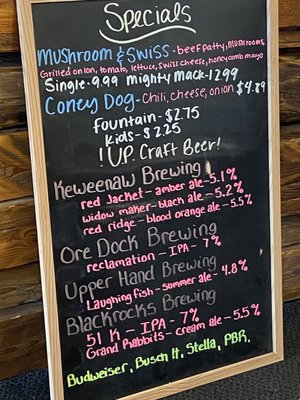 Specials
Mushroom & Swiss - beef patty, mushrooms,
Grilled onion, tomato, lettuce, swiss cheese, honeycomb mayo
Single - 9.99 Mighty Mack - 12.99
Coney Dog - Chili, cheese, onion $4.89
Fountain - $2.75
Kids - $2.25
! U.P. Craft Beer!
Keweenaw Brewing
red Jacket - amber ale - 5.1%
widow maker - black ale - 5.2%
red ridge - blood orange ale - 5.5%
Ore Dock Brewing
reclamation - IPA - 7%
Upper Hand Brewing
Laughing fish - summer ale - 4.8%
Blackrocks Brewing
51 K - IPA - 7%
Grand Rabbits - cream ale - 5.5%
Budweiser, Busch lt, Stella, PBR,